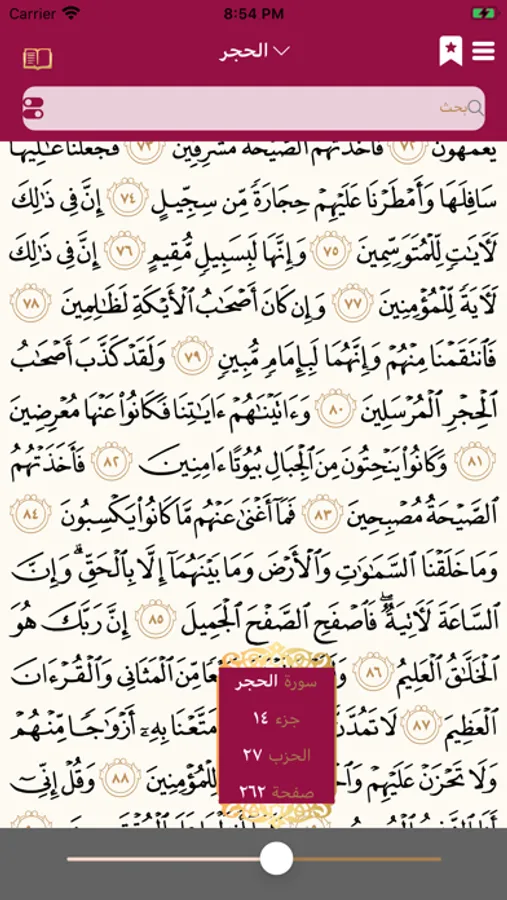 Carrier 8:54 PM
الحجر
بحث
يَعْمَهُونَ ٧٢ فَأَخَذَتْهُمُ ٱلصَّيْحَةُ مُشْرِقِينَ ٧٣ فَجَعَلْنَا عَٰلِيَهَا
سَافِلَهَا وَأَمْطَرْنَا عَلَيْهِمْ حِجَارَةً مِّن سِجِّيلٍ ٧٤ إِنَّ فِى ذَٰلِكَ
لَأٓيَٰتٍ لِّلْمُتَوَسِّمِينَ ٧٥ وَإِنَّهَا لَبِسَبِيلٍ مُّقِيمٍ ٧٦ إِنَّ فِى ذَٰلِكَ
لَأٓيَةً لِّلْمُؤْمِنِينَ ٧٧ وَإِن كَانَ أَصْحَٰبُ ٱلْأَيْكَةِ لَظَٰلِمِينَ ٧٨
فَٱنتَقَمْنَا مِنْهُمْ وَإِنَّهُمَا لَبِإِمَامٍ مُّبِينٍ ٧٩ وَلَقَدْ كَذَّبَ أَصْحَٰبُ
ٱلْحِجْرِ ٱلْمُرْسَلِينَ ٨٠ وَءَاتَيْنَٰهُمْ ءَايَٰتِنَا فَكَانُوا۟ عَنْهَا مُعْرِضِينَ
٨١ وَكَانُوا۟ يَنْحِتُونَ مِنَ ٱلْجِبَالِ بُيُوتًا ءَامِنِينَ ٨٢ فَأَخَذَتْهُمُ
ٱلصَّيْحَةُ مُصْبِحِينَ ٨٣ فَمَآ أَغْنَىٰ عَنْهُم مَّا كَانُوا۟ يَكْسِبُونَ ٨٤
وَمَا خَلَقْنَا ٱلسَّمَٰوَٰتِ وَٱلْأَرْضَ وَمَا بَيْنَهُمَآ إِلَّا بِٱلْحَقِّ ۗ وَإِنَّ
ٱلسَّاعَةَ لَأٓتِيَةٌ ۖ فَٱصْفَحِ ٱلصَّفْحَ ٱلْجَمِيلَ ٨٥ إِنَّ رَبَّكَ هُوَ
ٱلْخَلَّٰقُ ٱلْعَلِيمُ ٨٦ مِّنَ ٱلْمَثَانِى وَٱلْقُرْءَانَ
ٱلْعَظِيمَ ٨٧ لَا تَمُدَّنَّ مَتَّعْنَا بِهِۦٓ أَزْوَٰجًا مِّنْهُمْ
وَلَا تَحْزَنْ عَلَيْهِمْ لِلْمُؤْمِنِينَ ٨٨ وَقُلْ إِنِّىٓ
سورة الحجر
جزء ١٤
الحزب ٢٧
صفحة ٢٦٢